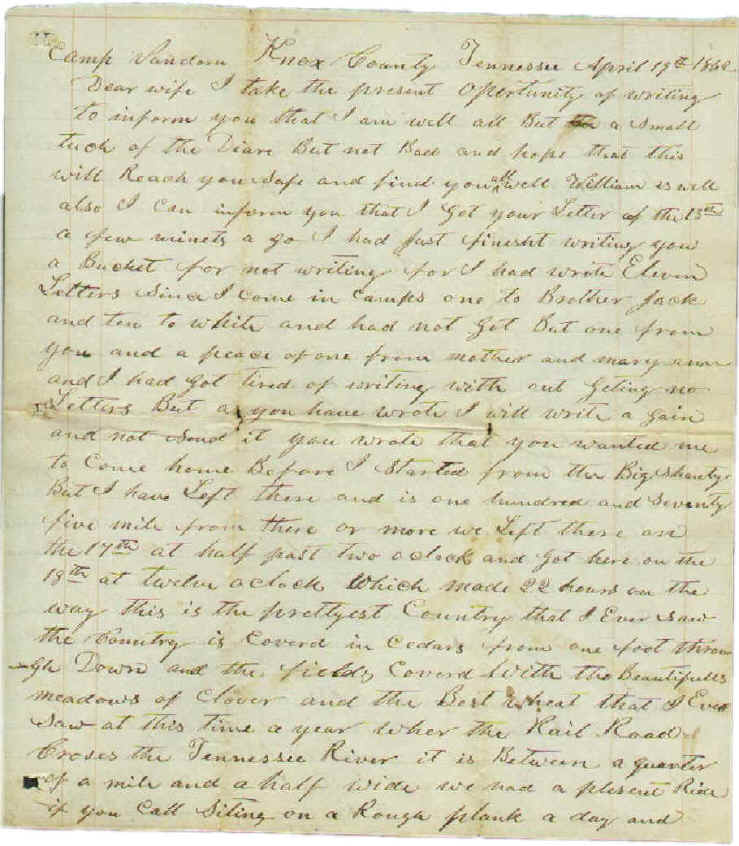 Camp Vandorn Knox County Tennessee April 19th 1862
Dear wife I take the present Opertunity of writing
to inform you that I am well all But a small
tuch of the Diare But not Bad and hope that this
will Reach you Safe and find you all well William is well
also I Can inform you that I Got your Letter of the 13th
a few minets a go I had Just finesht writing you
a Bucket for not writing for I had wrote Eleven
Letters Since I Come in Camps one to Brother Jack
and ten to white and had not Got But one from
you and a peace of one from mother and mary ann
and I had Got tired of writing with out Geting no
Letters But as you have wrote I will write a gain
and not Send it you wrote that you wanted me
to Come home Before I Started from the Big Shanty
But I have Left there and is one hundred and Seventy
five mile from there or more we Left there on
the 17th at half past two oclock and Got here on the
18th at twelve oclock Which made 22 hours on the
way this is the prettyest Country that I Ever Saw
the Country is Coverd in Cedars from one foot throu
gh Down and the fields Coverd With the Beautifulls
meadows of Clover and the Best wheat that I Ever
Saw at this time a year Wher the Rail Road
Croses the Tennessee River it is Between a quarter
of a mile and a half wide we had a plesent Ride
if you Call Siting on a Rough plank a day and